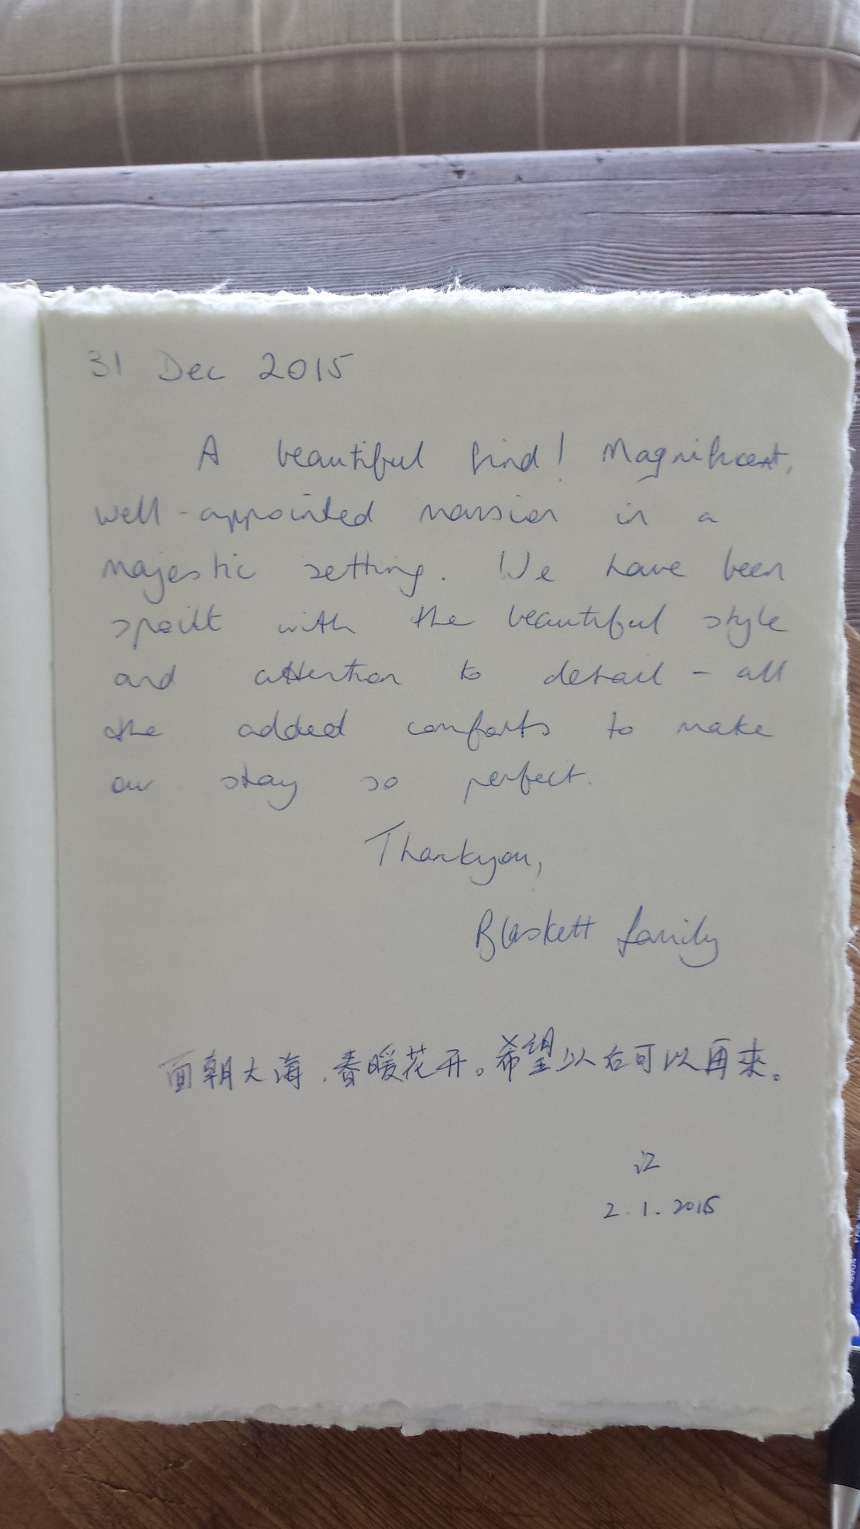 31 Dec 2015
A beautiful find! Magnificent,
well-appointed mansion in a
majestic setting. We have been
spoilt with the beautiful style
and attention to detail - all
the added comforts to make
our stay so perfect.
Thankyou,
Blaskett family
面朝大海,春暖花开。希望以后可以再来。
江
2.1.2015